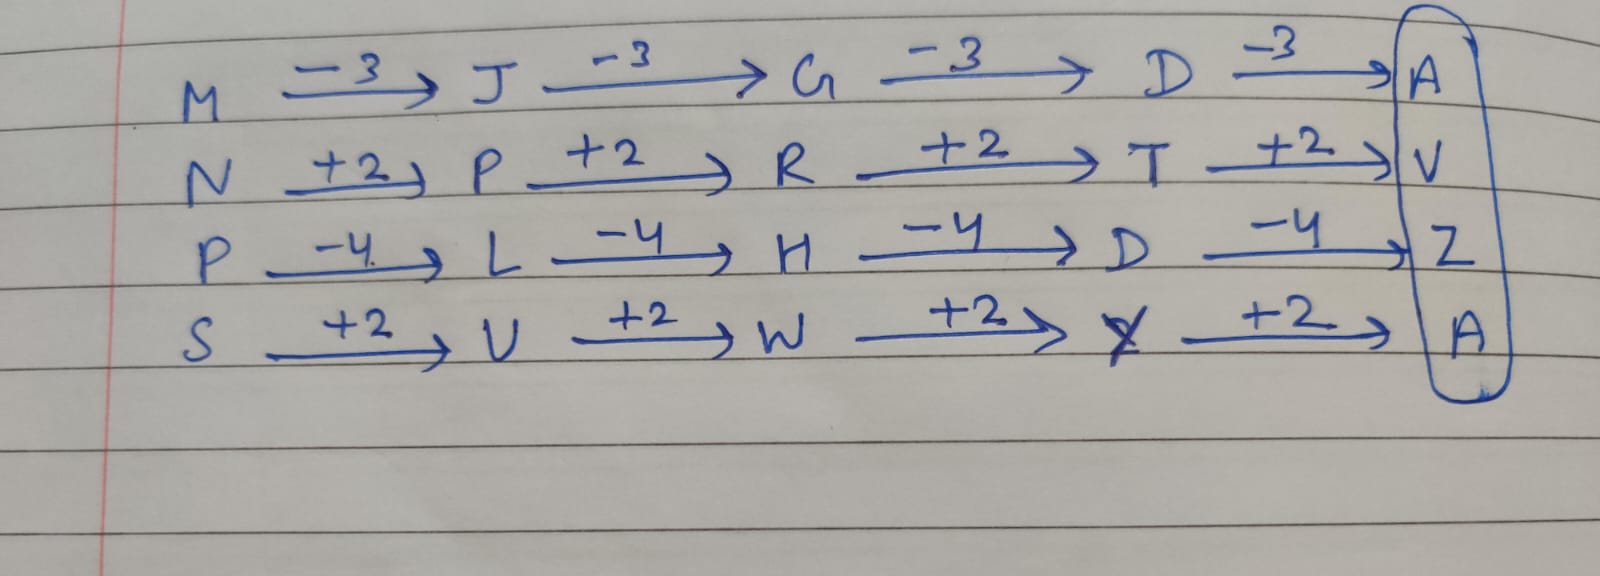 M -3 → J -3 → G -3 → D -3 → A
N +2 → P +2 → R +2 → T +2 → V
P -4 → L -4 → H -4 → D -4 → Z
S +2 → U +2 → W +2 → Y +2 → A